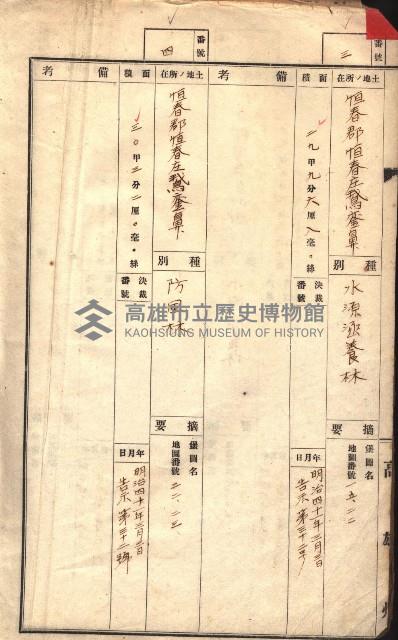 番號
三
土地ノ所在
恒春郡恒春庄鵞鑾鼻
面積
二九甲九分六厘八毫。絲
備考
種別
水源涵養林
決裁番號
摘要
堡圖名
地圖番號
一六、二二
年月日
明治四十一年三月三日
告示第三十二号
高雄州
番號
四
土地ノ所在
恒春郡恒春庄鵞鑾鼻
面積
三〇甲三分二厘。毫。絲
備考
種別
防風林
決裁番號
摘要
堡圖名
地圖番號
二二、二三
年月日
明治四十一年三月三日
告示第三十二號
高雄市立歷史博物館
KAOHSIUNG MUSEUM OF HISTORY